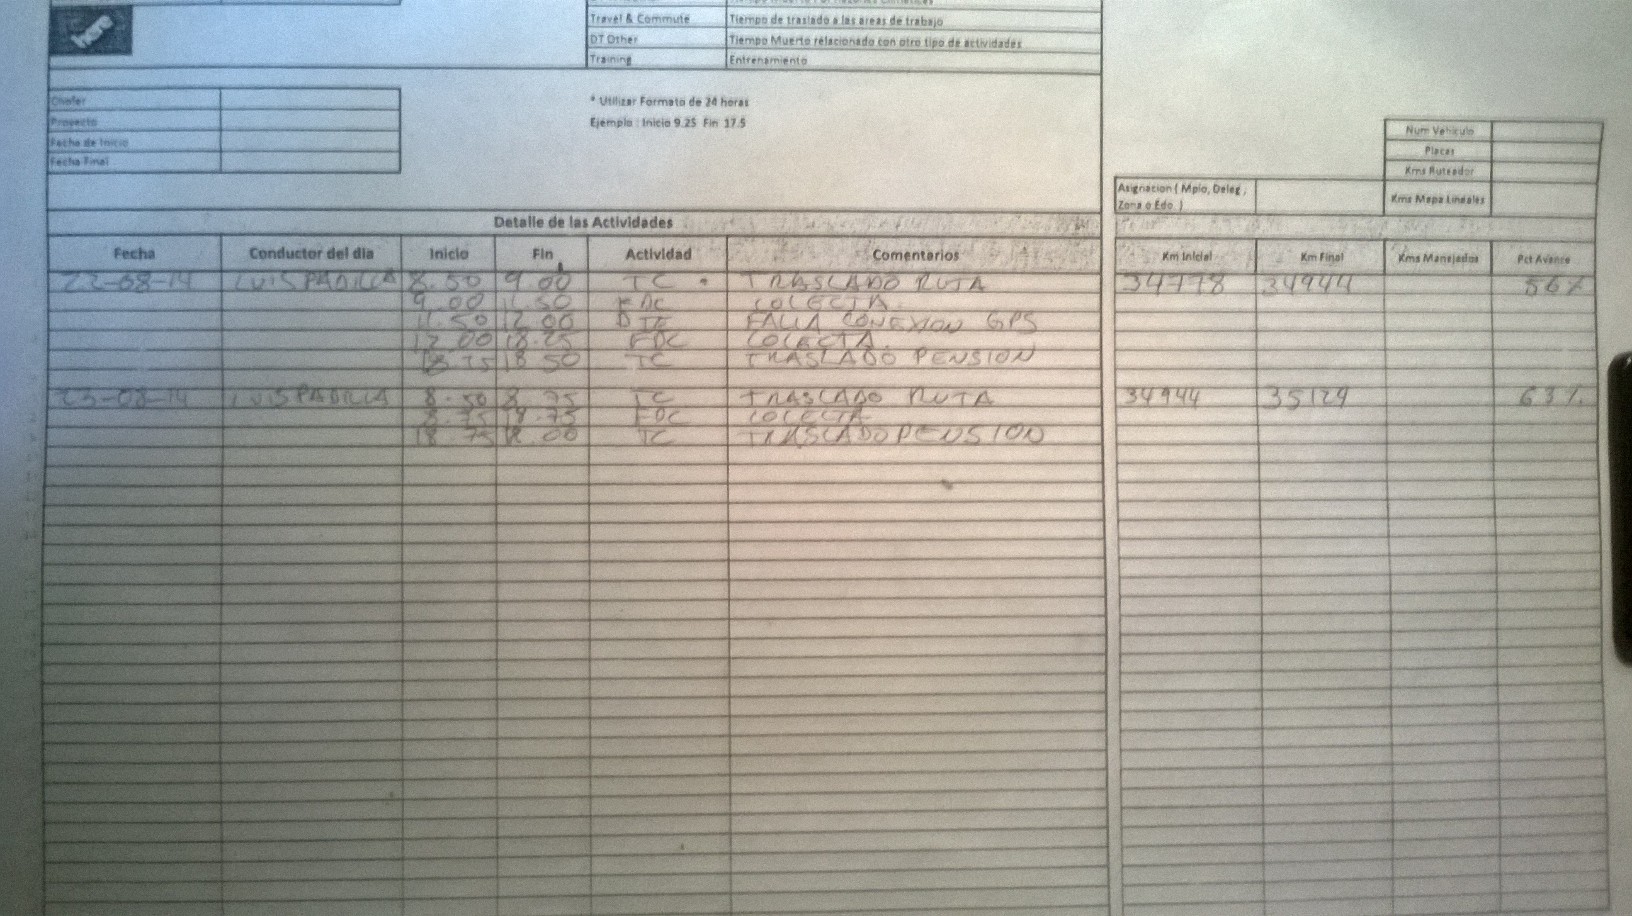 here
Travel & Commute Tiempo de traslado a las areas de trabajo
DT Other Tiempo Muerto relacionado con otro tipo de actividades
Training Entrenamiento
Chofer
Proyecto
Fecha de Inicio
Fecha Final
* Utilizar Formato de 24 horas
Ejemplo : Inicio 9.25 Fin 17.5
Num Vehiculo
Placas
Kms Ruteador
Asignacion ( Mpio, Deleg ,
Zona o Edo. )
Kms Mapa Lineales
Detalle de las Actividades
Fecha Conductor del dia Inicio Fin Actividad Comentarios Km Inicial Km Final Kms Manejados Pct Avance
22-08-14 LUIS PADILLA 8.50 9.00 TC TRASLADO RUTA 34778 34944 56%
9.00 11.50 FDC COLECTA.
11.50 12.00 DTE FALLA CONEXION GPS
12.00 18.25 FDC COLECTA.
18.50 TC TRASLADO PENSION
23-08-14 LUIS PADILLA 8.50 8.75 TC TRASLADO RUTA 34944 35129 63%
8.75 18.75 FDC COLECTA
18.75 .00 TC TRASLADO PENSION